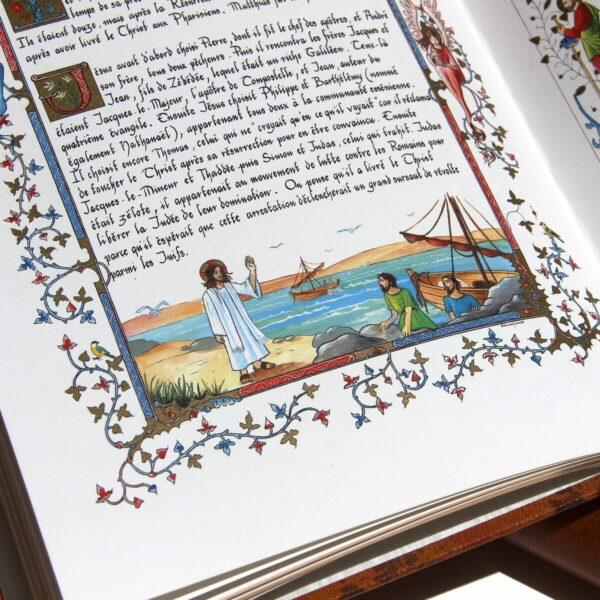 temps de sa prédication
Ils étaient douze, mais après la Résurrection
après avoir livré le Christ aux Pharisiens. Matthias
Jésus avait d'abord choisi Pierre, dont il fit le chef des apôtres, et André
son frère, tous deux pêcheurs. Puis il rencontra les frères Jacques et
Jean, fils de Zébédée, lequel était un riche Galiléen. Ceux-là
étaient Jacques-le-Majeur, l'apôtre de Compostelle, et Jean, auteur du
quatrième évangile. Ensuite Jésus choisit Philippe et Barthélémy (nommé
également Nathanaël), appartenant tous deux à la communauté essénienne.
Il choisit encore Thomas, celui qui ne croyait qu'en ce qu'il voyait car il réclama
de toucher le Christ après sa résurrection pour en être convaincu. Ensuite
Jacques-le-Mineur et Thaddée puis Simon et Judas, celui qui trahit. Judas
était zélote, il appartenait au mouvement de lutte contre les Romains pour
libérer la Judée de leur domination. On pense qu'il a livré le Christ
parce qu'il espérait que cette arrestation déclencherait un grand sursaut de révolte
parmi les Juifs.